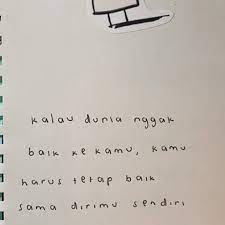 kalau dunia nggak
baik ke kamu, kamu
harus tetap baik
sama dirimu sendiri